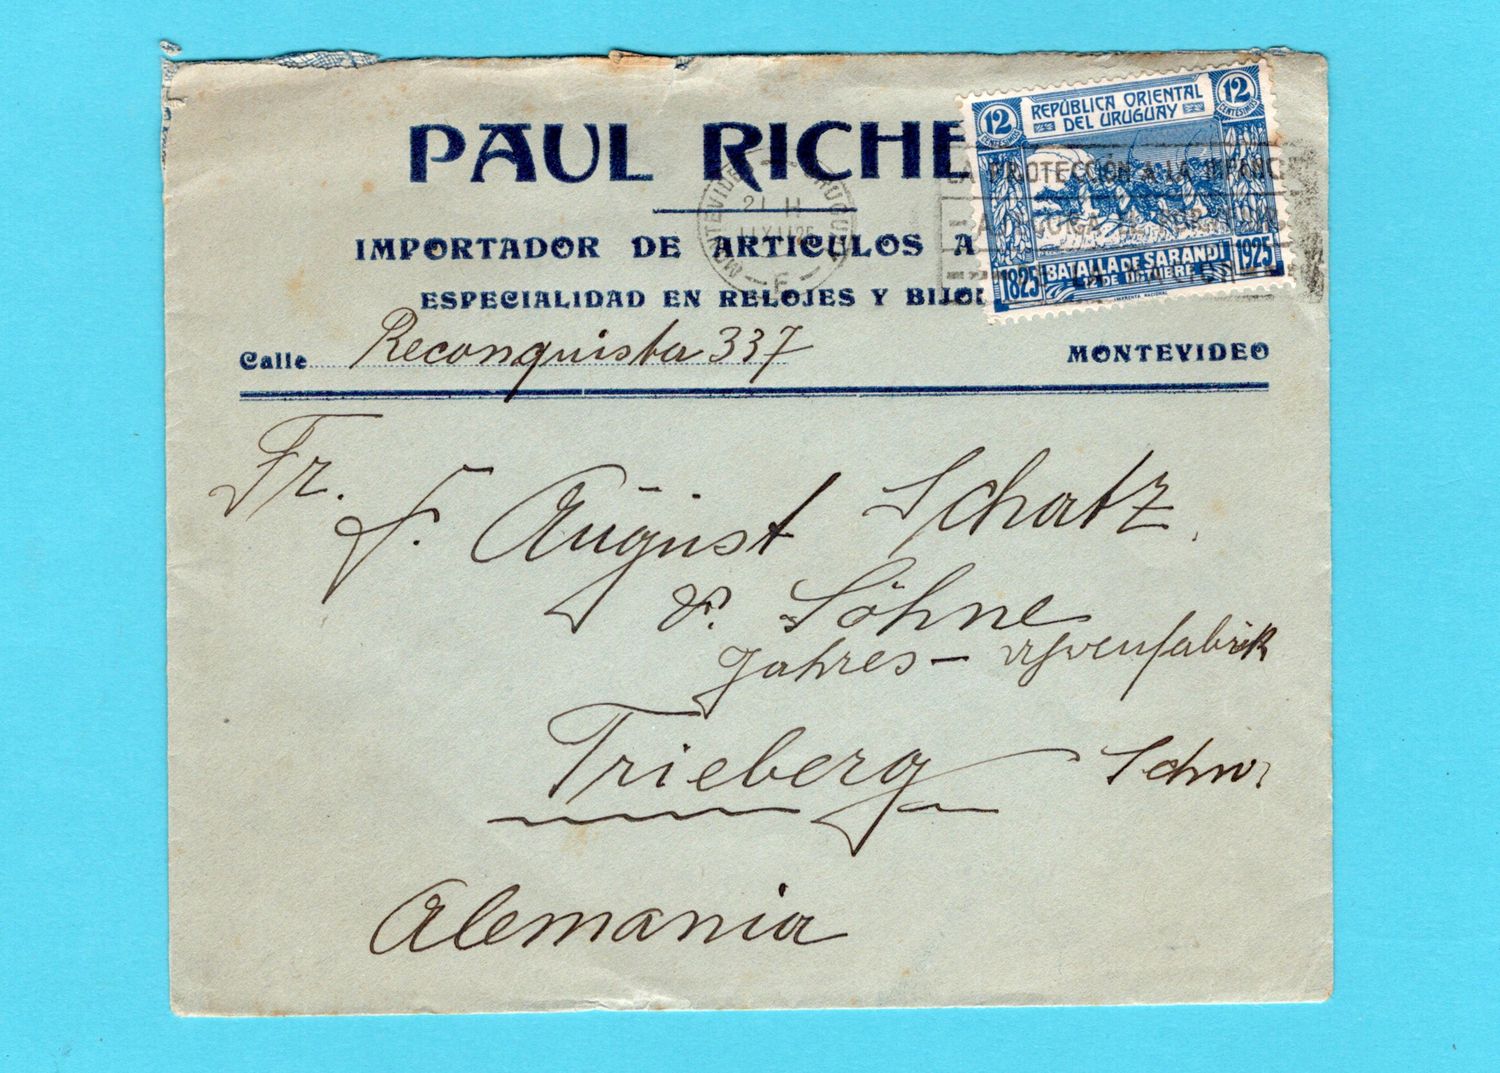 PAUL RICHE
IMPORTADOR DE ARTICULOS A
ESPECIALIDAD EN RELOJES Y BIJOU
Calle Reconquista 337 MONTEVIDEO
12 CENTÉSIMOS REPÚBLICA ORIENTAL 12 CENTÉSIMOS
DEL URUGUAY
1825 BATALLA DE SARANDI 1925
12 DE OCTUBRE
IMPRENTA NACIONAL
MONTEVIDEO URUGUAY
21 H
F
LA PROTECCIÓN A LA INFANC
Fr.
F. August Schatz
& Söhne
Jahres- Uhrenfabrik
Trieberg Schw.
Alemania